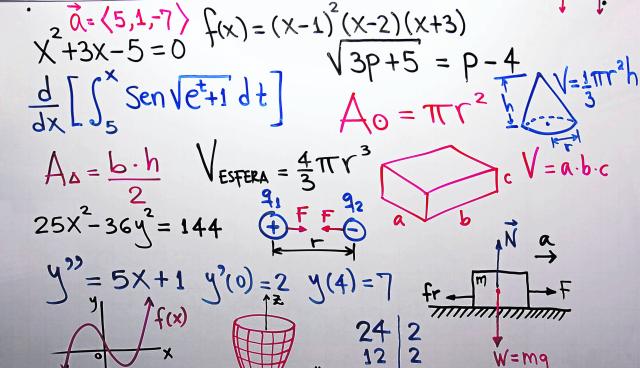 a⃗ = ⟨5,1,-7⟩
f(x) = (x-1)²(x-2)(x+3)
x²+3x-5=0
√3p+5 = p-4
d/dx [∫₅ˣ Sen√eᵗ+1 dt]
A⊙ = πr²
h
r
V=1/3πr²h
A△ = b·h/2
V ESFERA = 4/3 πr³
a
b
c
V=a·b·c
25x²-36y²=144
q₁
q₂
+
F
F
-
r
N⃗
a
m
fr
F
W=mg
y''=5x+1 y'(0)=2 y(4)=7
y
f(x)
o
x
z
24 | 2
12 | 2